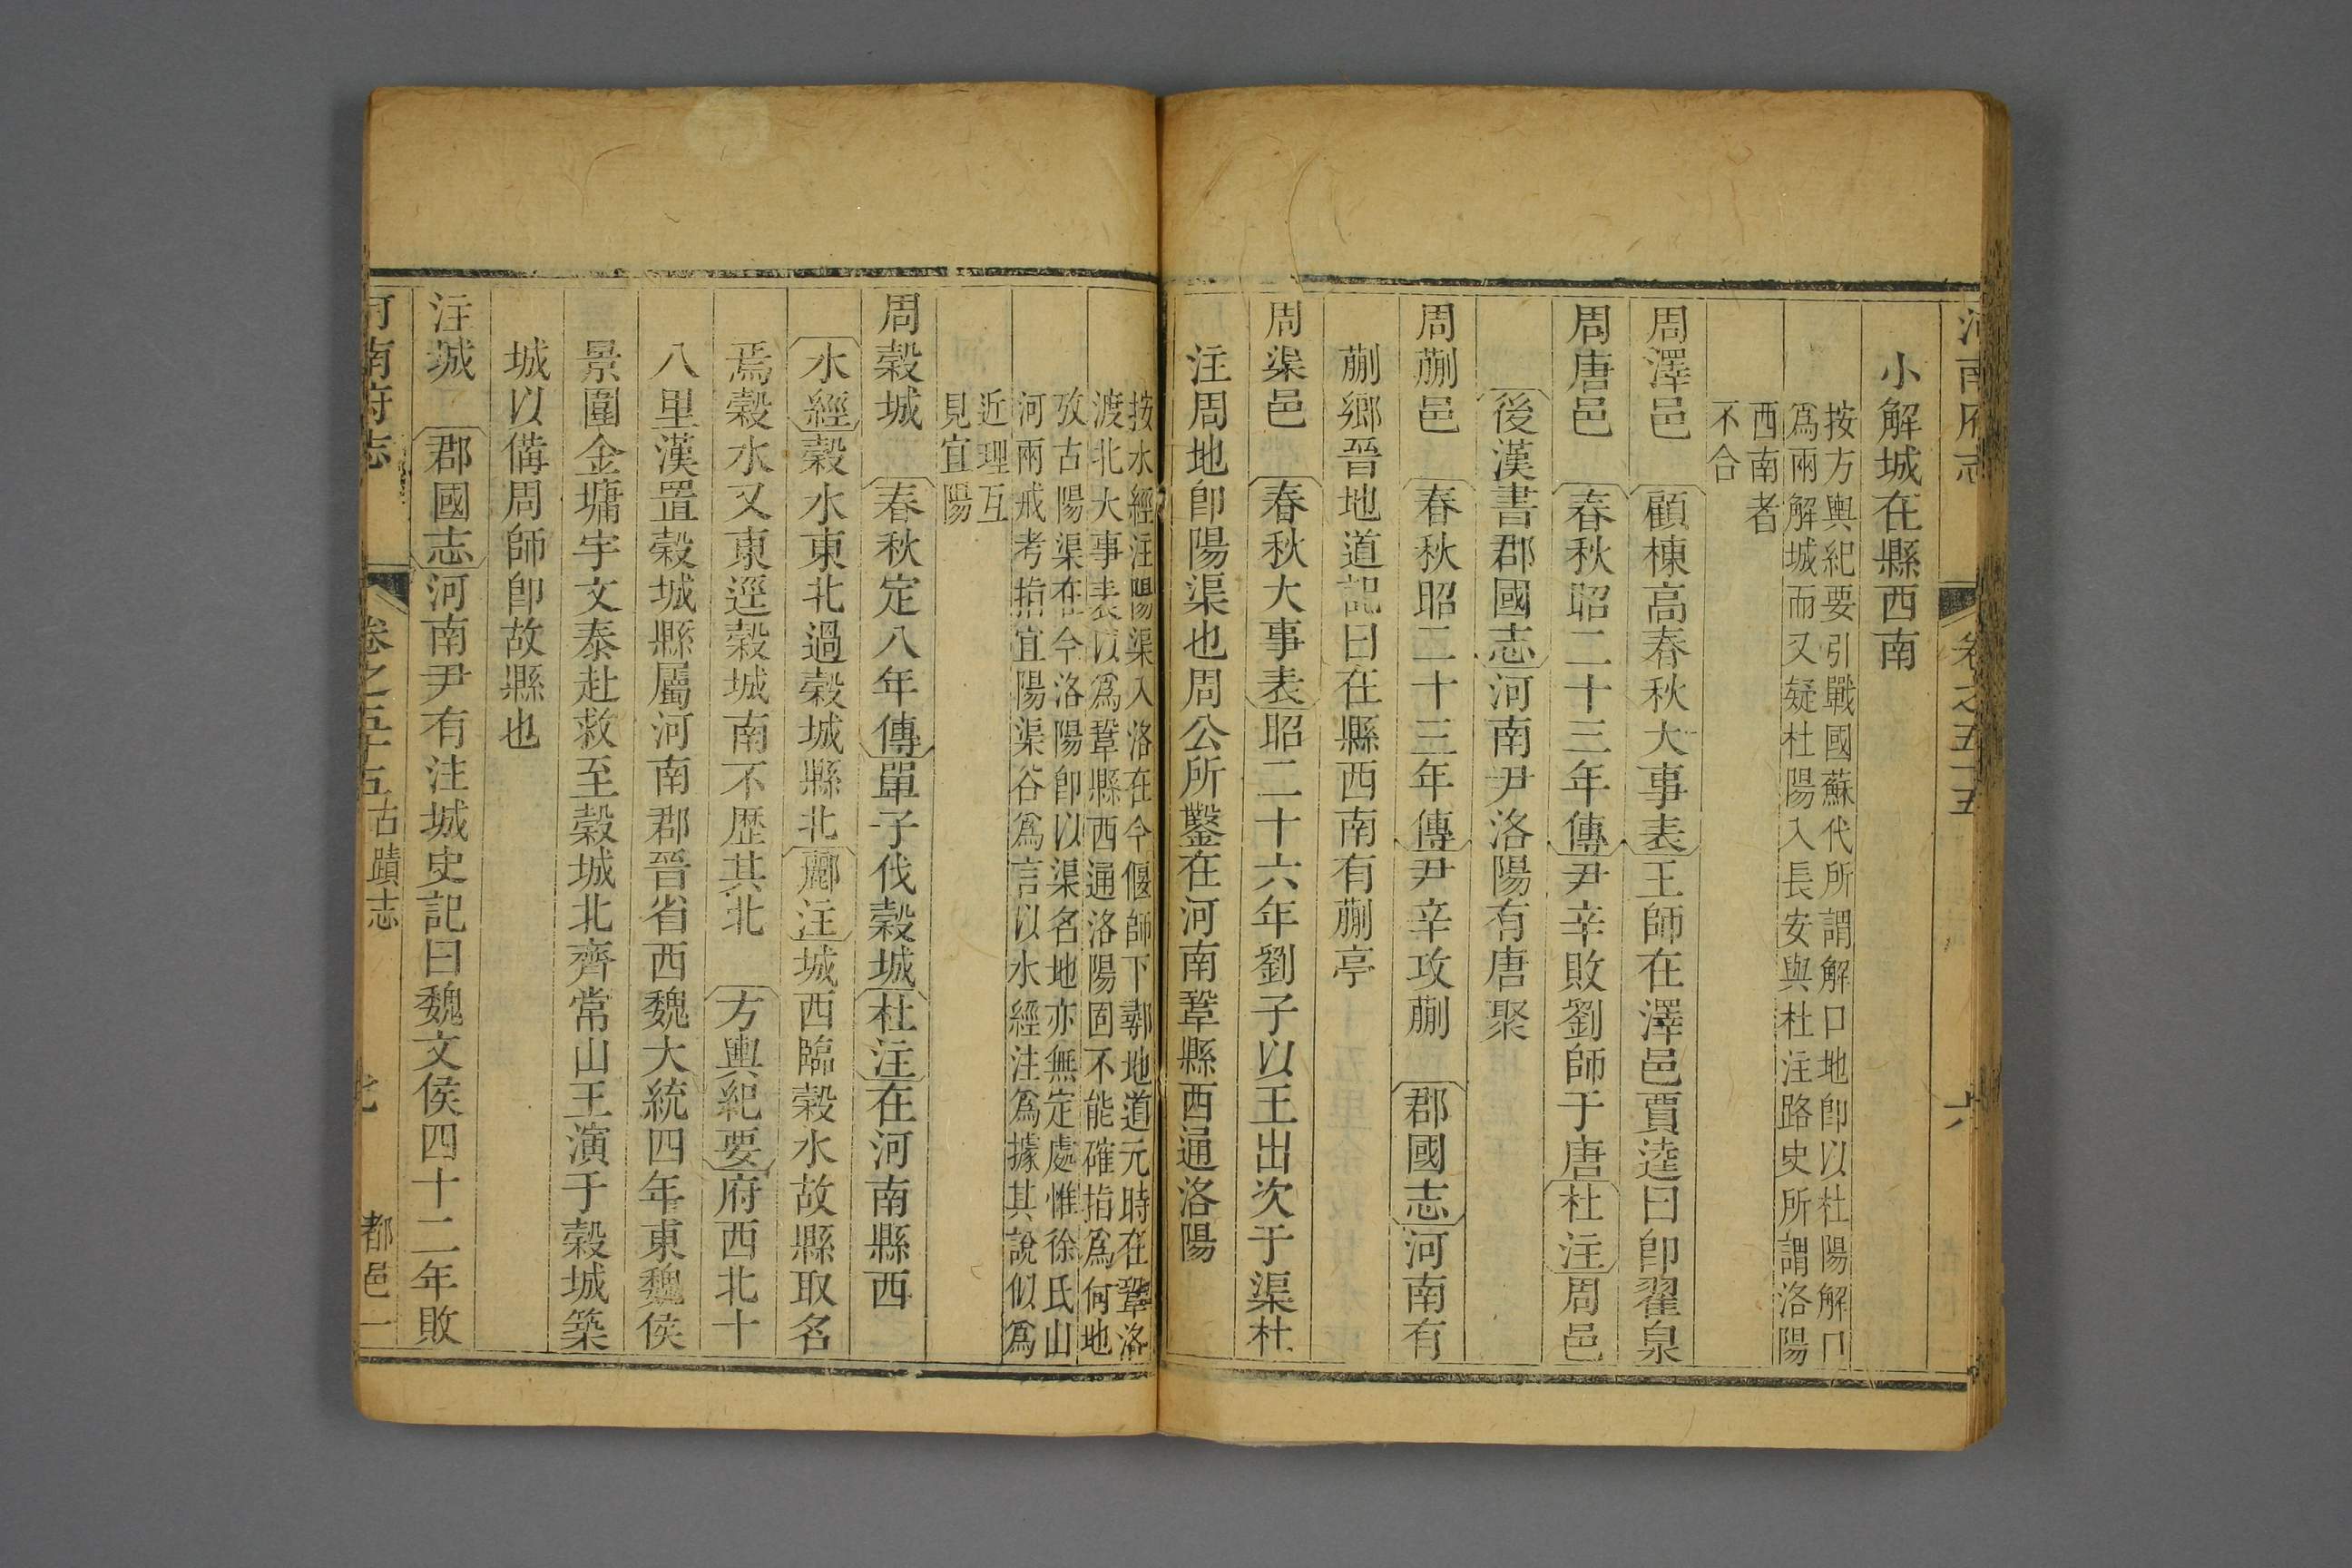 河南府志
卷之五十五
六
小解城在縣西南
按方輿紀要引戰國蘇代所謂解口地即以杜陽解口
為兩解城而又疑杜陽入長安與杜注路史所謂洛陽
西南者
不合
周澤邑 顧棟高春秋大事表王師在澤邑賈逵曰即翟泉
周唐邑 春秋昭二十三年傳尹辛敗劉師于唐杜注周邑
後漢書郡國志河南尹洛陽有唐聚
周蒯邑 春秋昭二十三年傳尹辛攻蒯 郡國志河南有
蒯鄉晉地道記曰在縣西南有蒯亭
周渠邑 春秋大事表昭二十六年劉子以王出次于渠杜
注周地即陽渠也周公所鑿在河南鞏縣西通洛陽
按水經注陽渠入洛在今偃師下鄩地道元時在鞏洛
渡北大事表以為鞏縣西通洛陽固不能確指為何地
攷古陽渠在今洛陽即以渠名地亦無定處惟徐氏山
河兩戒考指宜陽渠谷為言以水經注為據其說似為
近理互
見宜陽
周穀城 春秋定八年傳單子伐穀城杜注在河南縣西
水經穀水東北過穀城縣北酈注城西臨穀水故縣取名
焉穀水又東逕穀城南不歷其北 方輿紀要府西北十
八里漢置穀城縣屬河南郡晉省西魏大統四年東魏侯
景圍金墉宇文泰赴救至穀城北齊常山王演于穀城築
城以備周師即故縣也
注城 郡國志河南尹有注城史記曰魏文侯四十二年敗
河南府志
卷之五十五 古蹟志
七
都邑一